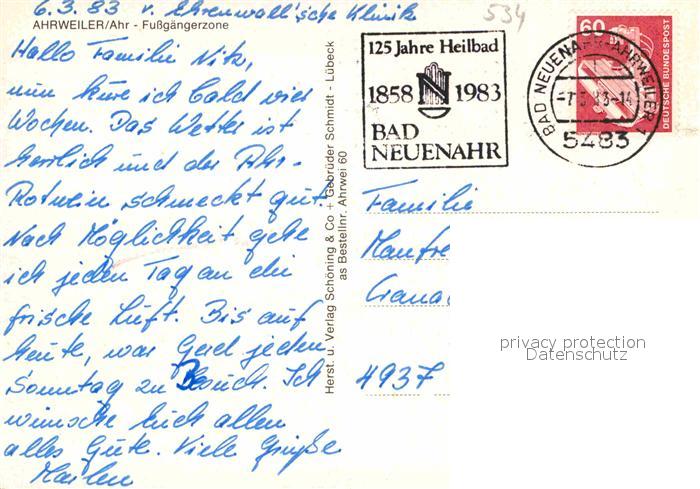 6.3.83 v. Ehrenwall'sche Klinik
AHRWEILER/Ahr - Fußgängerzone
Hallo Familie Nitz,
nun kure ich bald vier
Wochen. Das Wetter ist
herrlich und der Ahr-
Rotwein schmeckt gut.
Nach Möglichkeit gehe
ich jeden Tag an die
frische Luft. Bis auf
heute, war Gerd jeden
Sonntag zu Besuch. Ich
wünsche Euch allen
alles Gute. Viele Grüße
Herst. u. Verlag Schöning & Co + Gebrüder Schmidt - Lübeck
as Bestellnr. Ahrwei 60
534
125 Jahre Heilbad
1858 N 1983
BAD
NEUENAHR
BAD NEUENAHR-AHRWEILER 1
5483
60
DEUTSCHE BUNDESPOST
Familie
Manfre
Crana
4937
privacy protection
Datenschutz